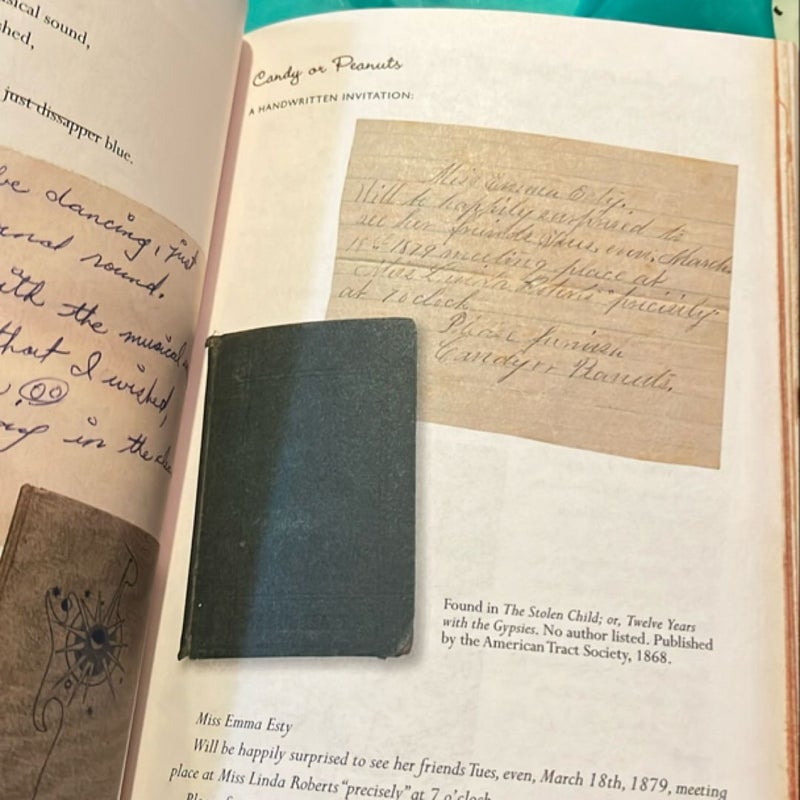 sical sound,
shed,
just dissapper blue.
be dancing, just
sound.
with the musical
that I wished,
in the
Candy or Peanuts
A HANDWRITTEN INVITATION:
Miss Emma Esty.
Will be happily surprised to
see her friends Tues, even, March
18th 1879 meeting place at
Miss Linda Roberts "precisely"
at 7 oclock
Please furnish
Candy or Peanuts.
Found in The Stolen Child; or, Twelve Years
with the Gypsies. No author listed. Published
by the American Tract Society, 1868.
Miss Emma Esty
Will be happily surprised to see her friends Tues, even, March 18th, 1879, meeting
place at Miss Linda Roberts "precisely" at 7 o'clock